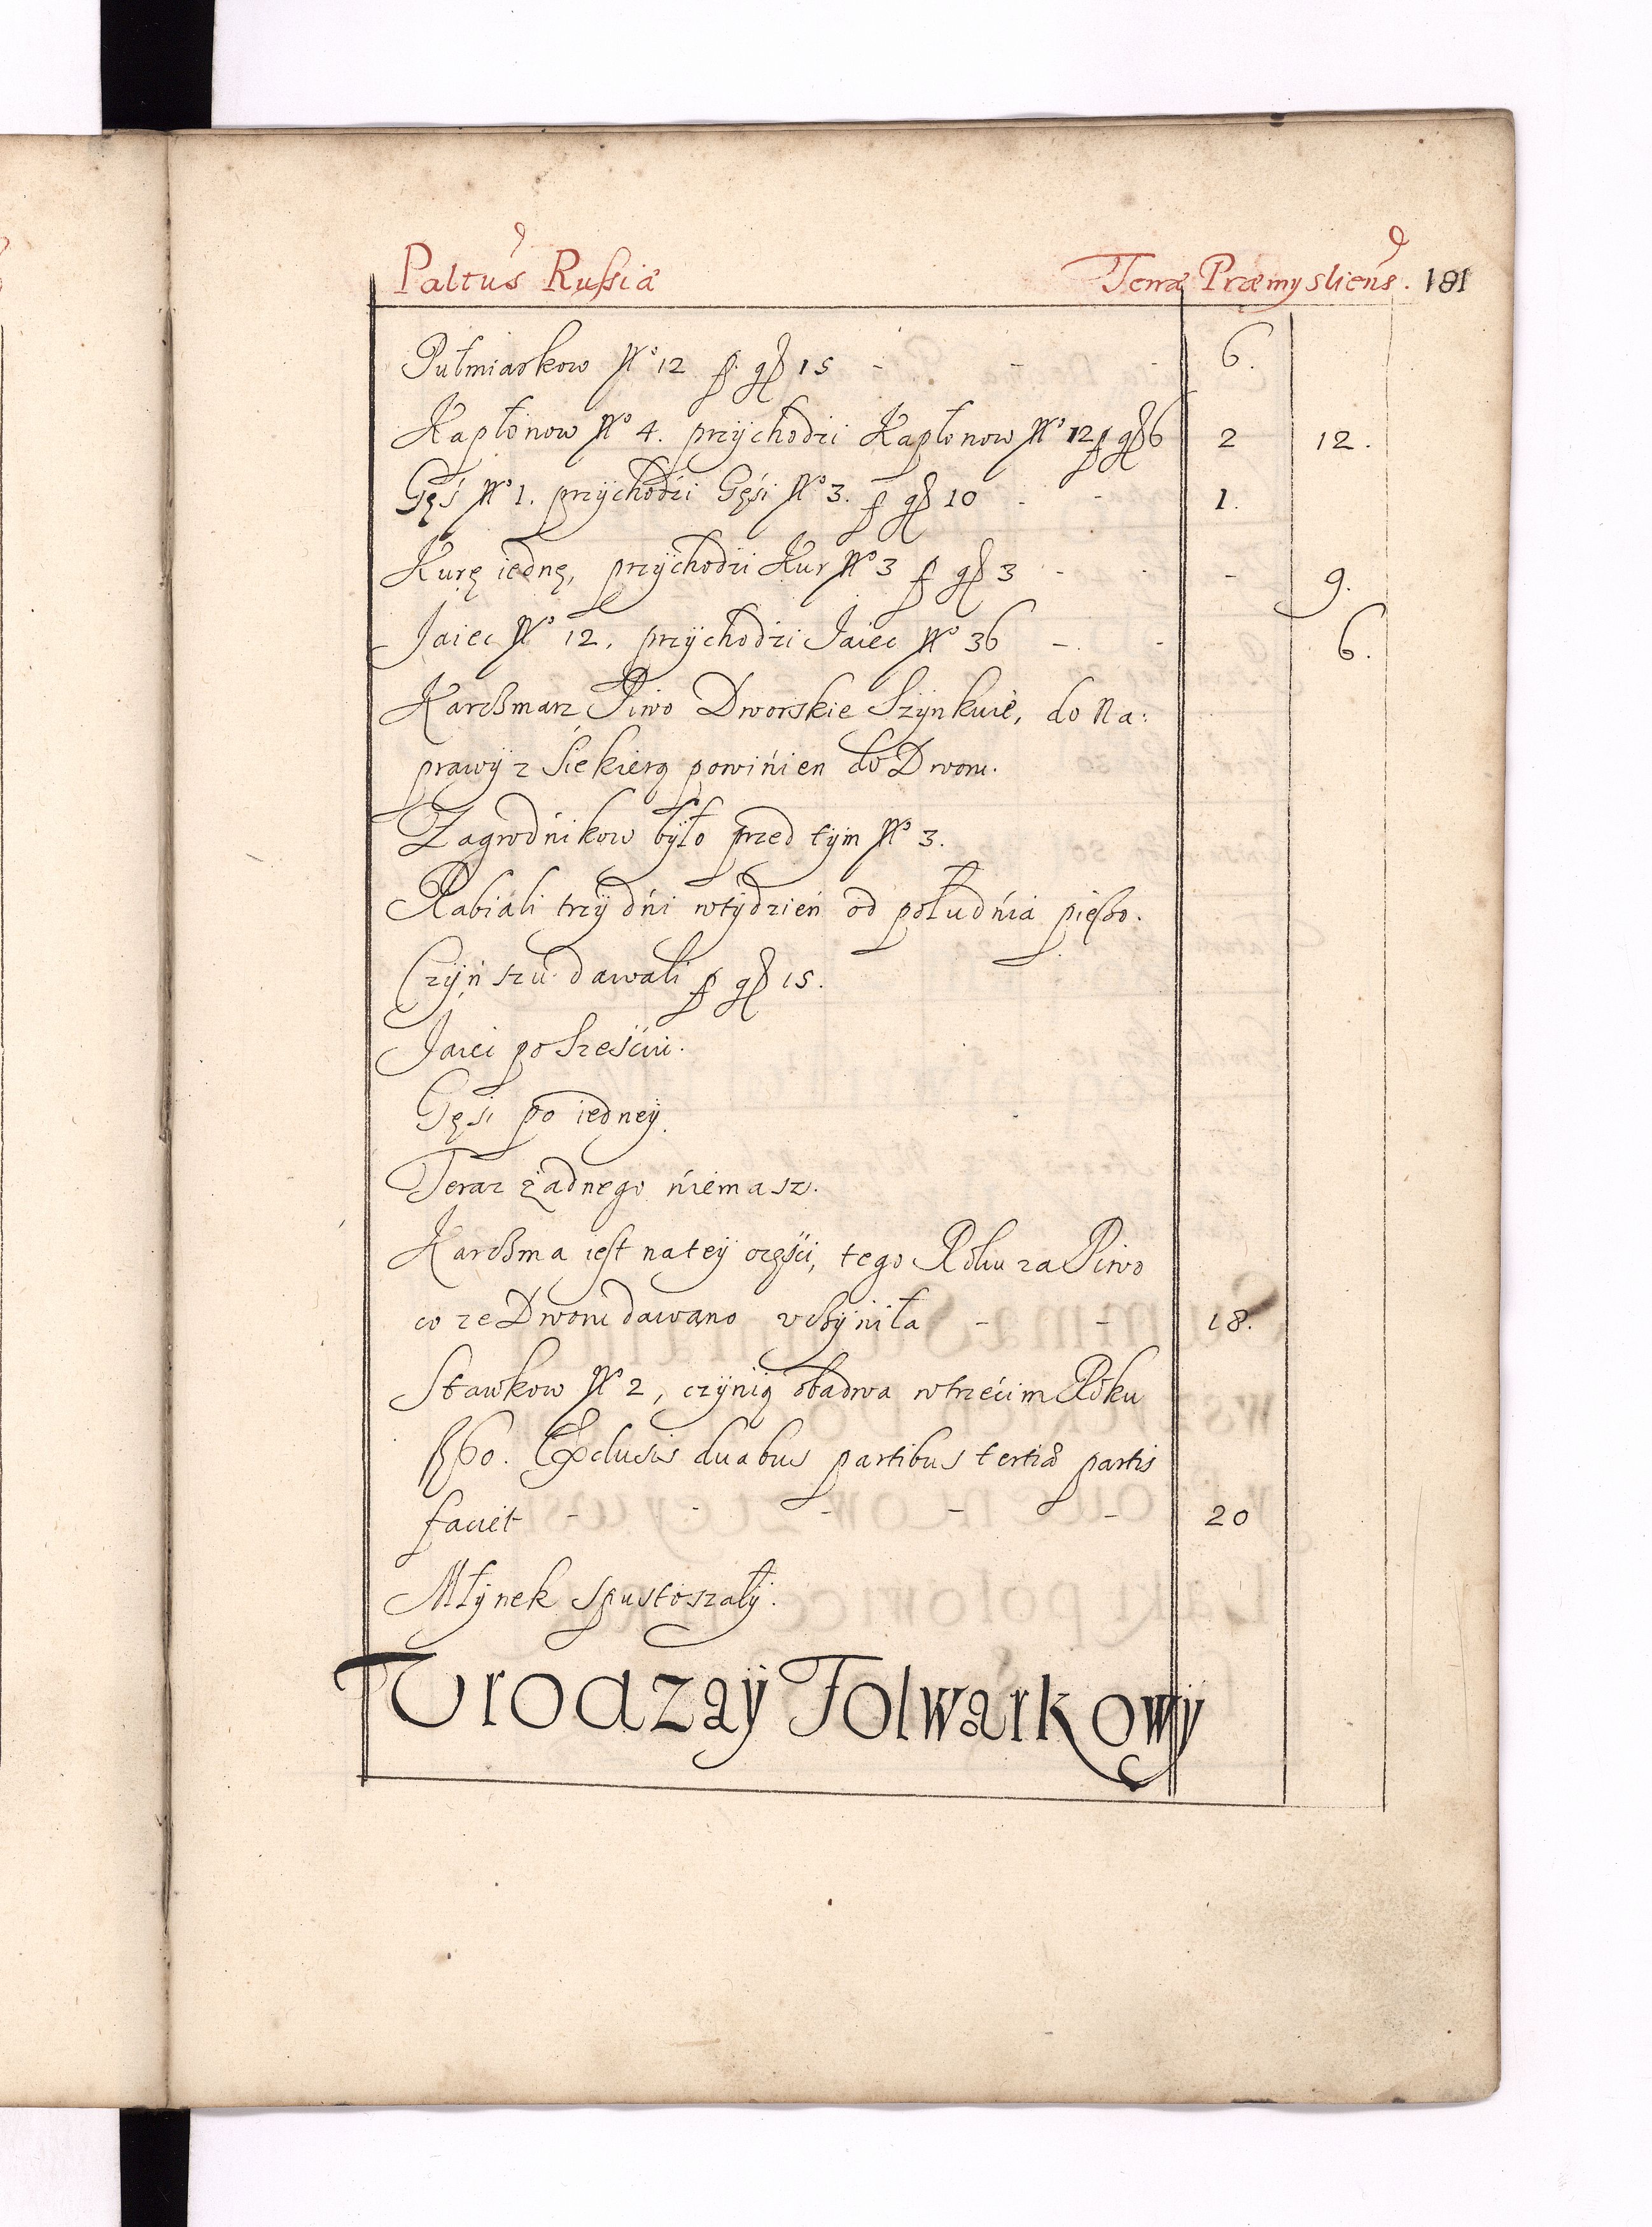 Paltus Russiæ Terræ Præmysliens. 181
Pułmiarkow No 12 p. gr 15 - - - 6.
Kapłonow No 4. przÿchodzi Kapłonow No 12 p gr 6 2 12.
Gęś No 1. przÿchodźi Gęśi No 3. p gr 10 - - 1.
Kurę iednę, przÿchodźi Kur No 3 p gr 3 - - - 9.
Jaiec No 12. przÿchodźi Jaiec No 36 - - 6.
Karczmarz Piwo Dworskie Szÿnkuie, do Na:
prawÿ z Siekierą powińien do Dworu.
Zagrodńikow bÿło przed tÿm No 3.
Rabiali trzÿ dńi wtÿdzień od południa pieszo.
Czÿńszu dawali p gr 15.
Jaiec po Sześćiu.
Gęśi po iedneÿ.
Teraz żadnego ńiemasz.
Karczma iest na teÿ częśći, tego Roku za Piwo
co ze Dworu dawano vczÿńiła - - 18.
Stawkow No 2, czÿnią obadwa w trzećim Roku
fl 60. Exclusis duabus partibus tertiæ partis
faciet - - - - - 20
Młÿnek Spustoszałÿ.
Vrodzaÿ Folwarkowÿ